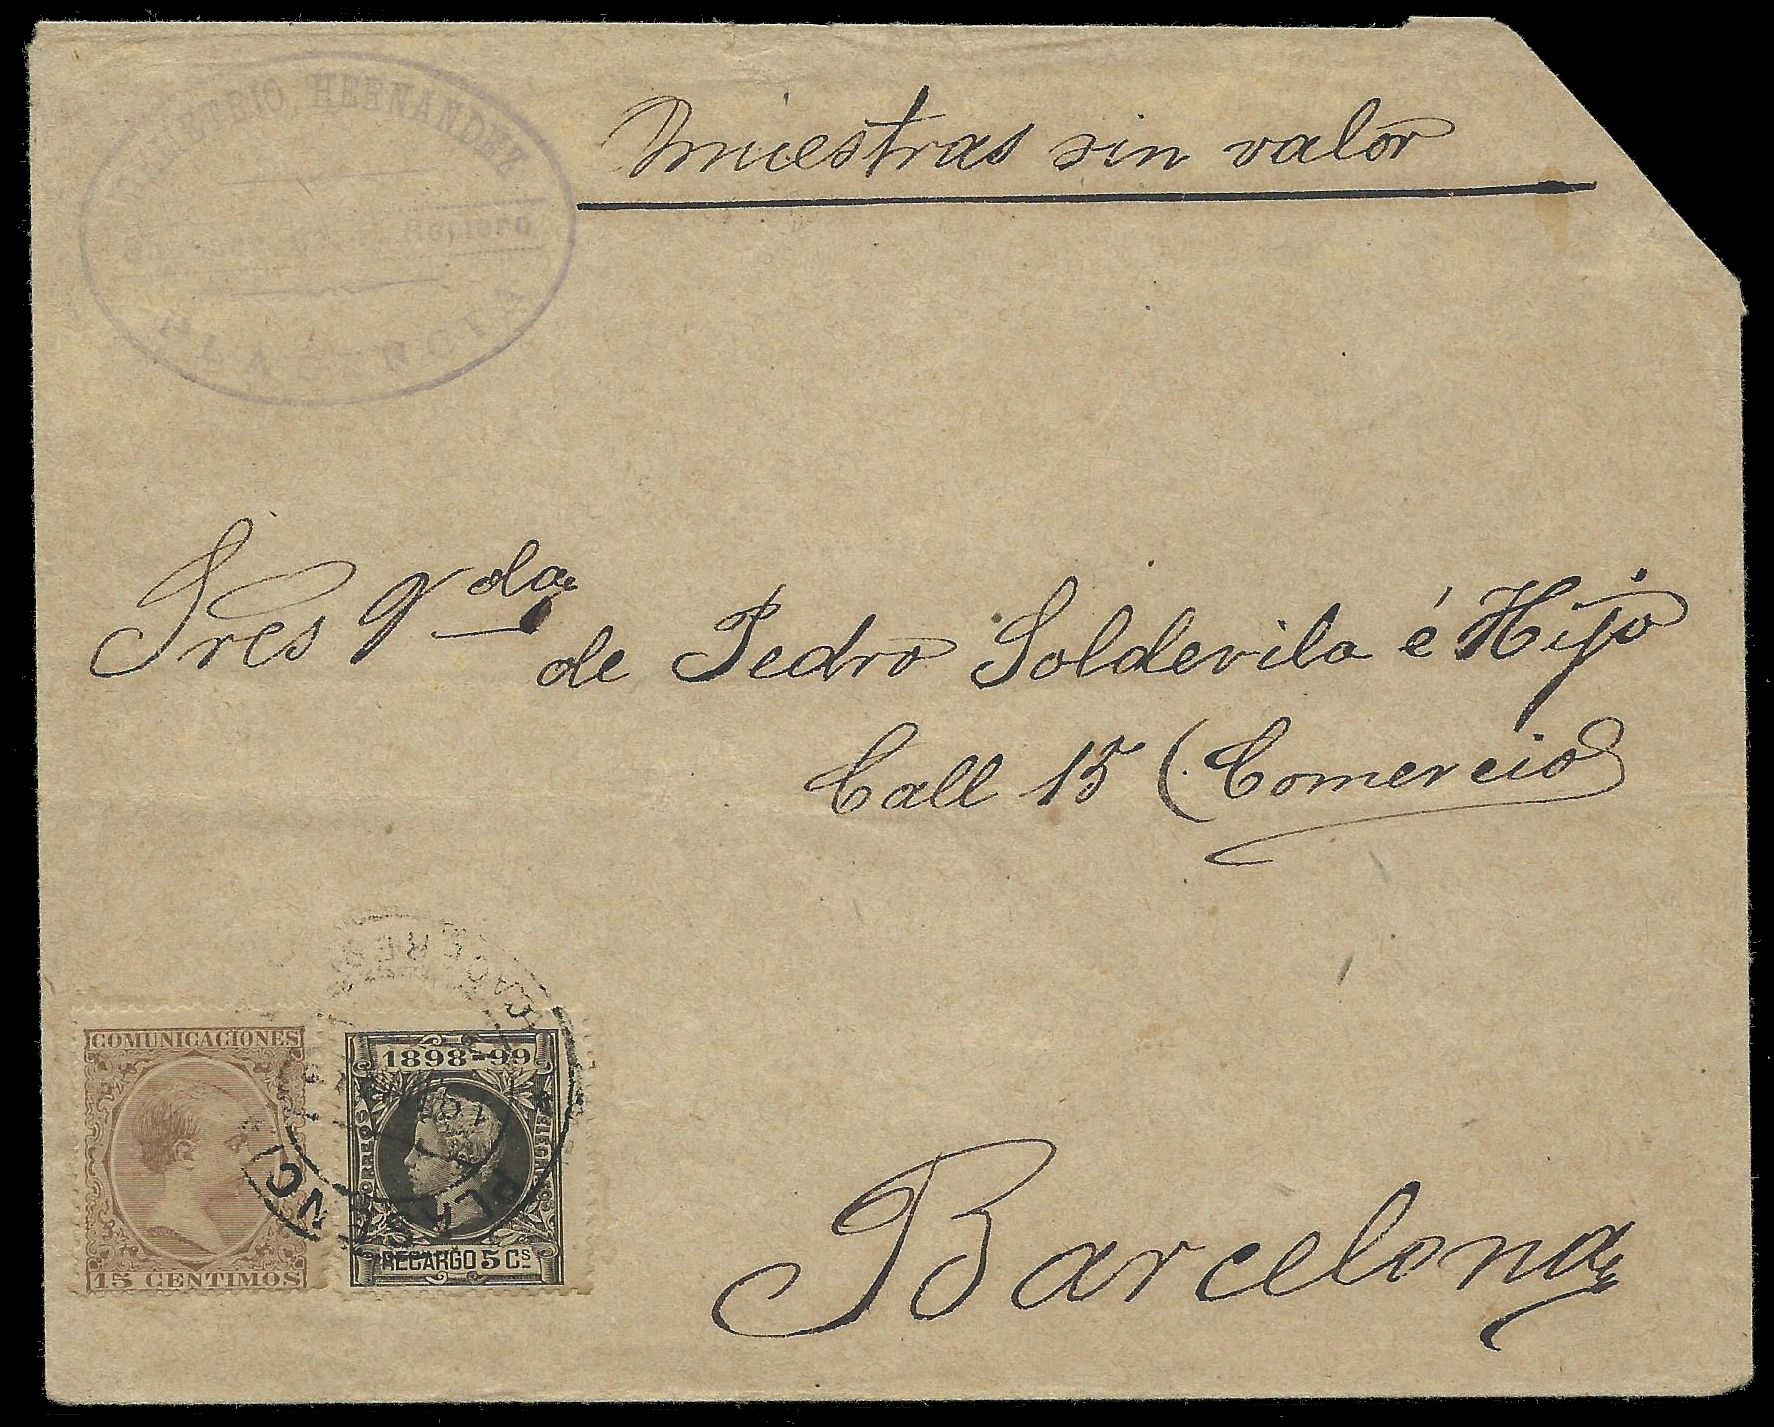 HERNANDEZ
PLASENCIA
Muestras sin valor
Sres Vda
de Pedro Soldevila é Hijo
Call 15 (Comercio
Barcelona
COMUNICACIONES
15 CENTIMOS
1898-99
CORREOS
RECARGO 5 Cs
CACERES
PLASENCI